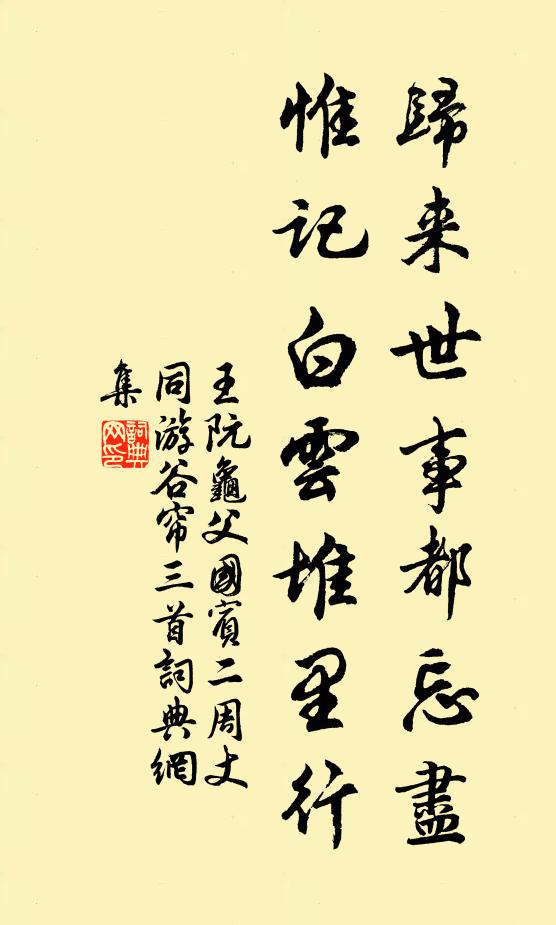 歸来世事都忘盡
惟記白雲堆里行
王阮龜父國賓二周丈
同游谷帘三首詞典網
集
詞典網印